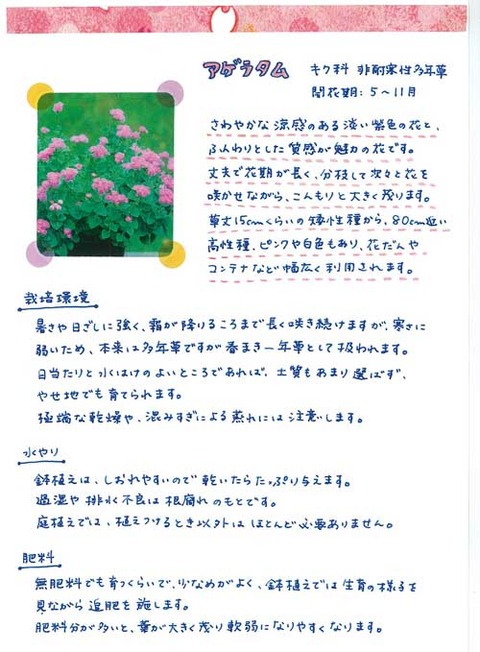 アゲラタム
キク科 非耐寒性多年草
開花期：5～11月
さわやかな涼感のある淡い紫色の花と、
ふんわりとした質感が魅力の花です。
丈夫で花期が長く、分枝して次々と花を
咲かせながら、こんもりと大きく茂ります。
草丈15cmくらいの矮性種から、80cm近い
高性種、ピンクや白色もあり、花だんや
コンテナなど幅広く利用されます。
栽培環境
暑さや日ざしに強く、霜が降りるころまで長く咲き続けますが、寒さに
弱いため、本来は多年草ですが春まき一年草として扱われます。
日当たりと水はけのよいところであれば、土質もあまり選ばず、
やせ地でも育てられます。
極端な乾燥や、混みすぎによる蒸れには注意します。
水やり
鉢植えは、しおれやすいので乾いたらたっぷり与えます。
過湿や排水不良は根腐れのもとです。
庭植えでは、植えつけるとき以外はほとんど必要ありません。
肥料
無肥料でも育つくらいで、少なめがよく、鉢植えでは生育の様子を
見ながら追肥を施します。
肥料分が多いと、葉が大きく茂り軟弱になりやすくなります。